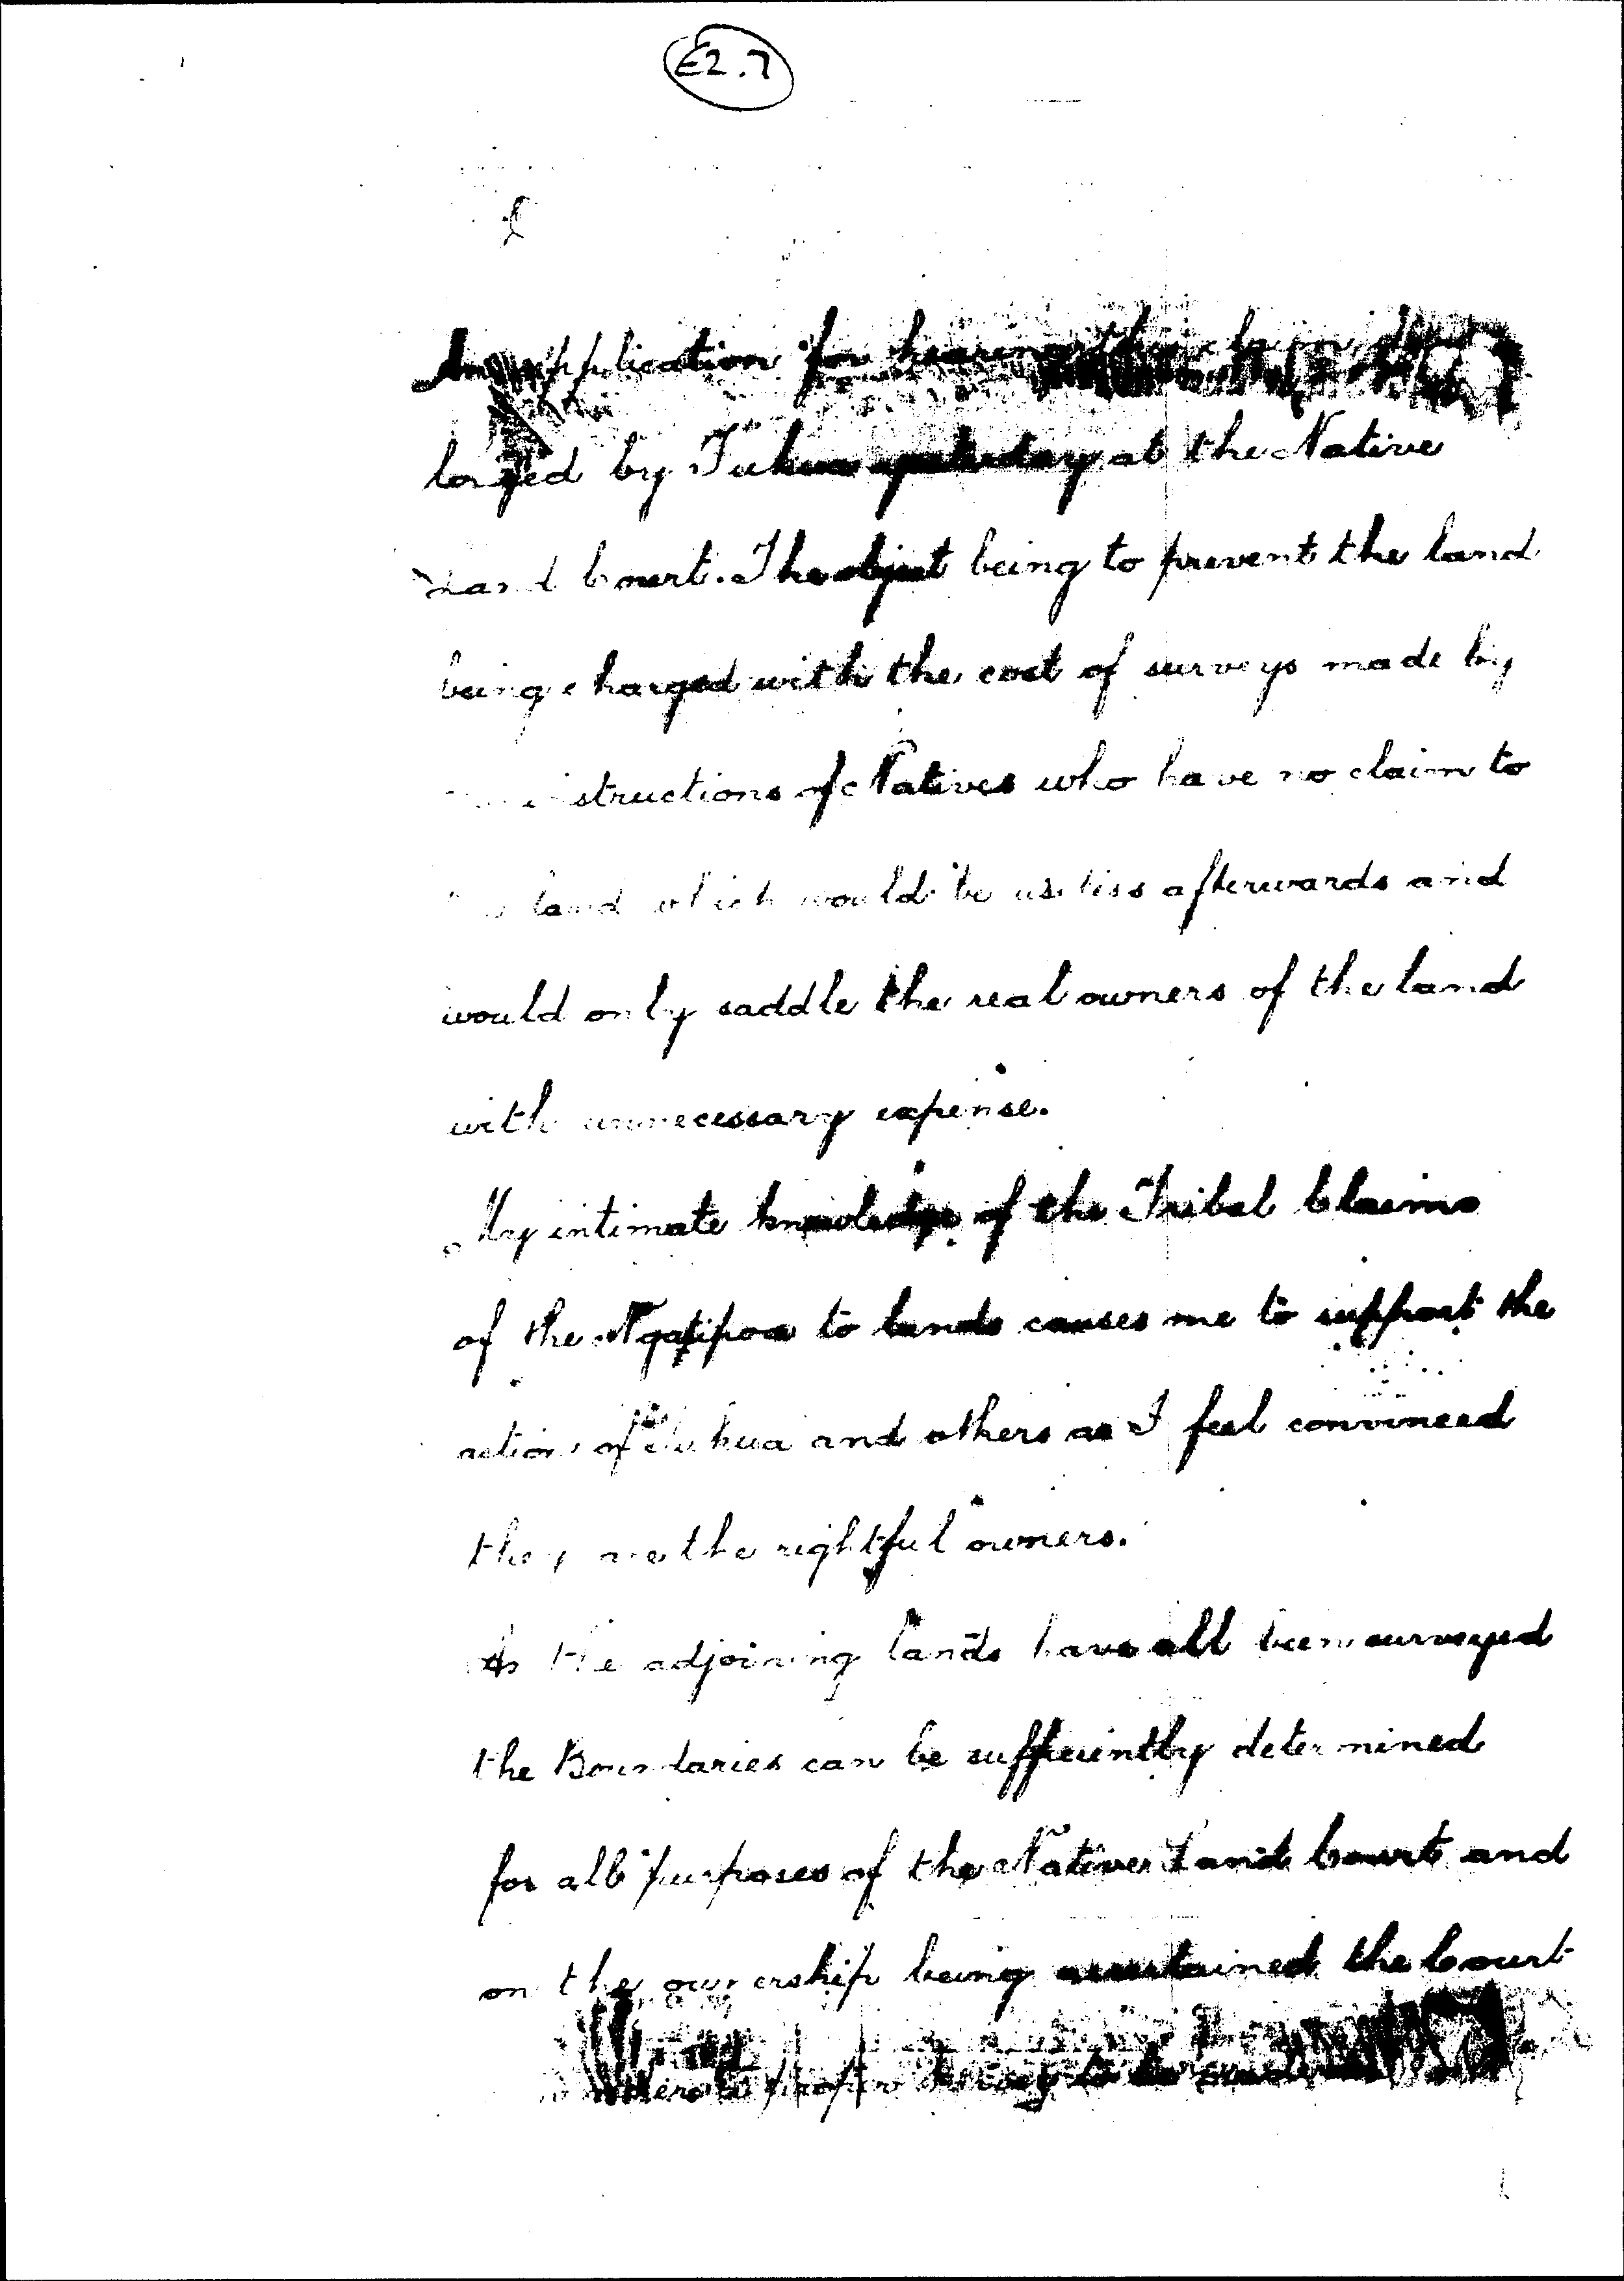 E2.7
An application for hearing the claim
lodged by Tukua yesterday at the Native
Land Court. The object being to prevent the land
being charged with the cost of surveys made by
instructions of Natives who have no claim to
land which would be useless afterwards and
would only saddle the real owners of the land
with unnecessary expense.
My intimate knowledge of the Tribal Claims
of the Ngatipoa to lands causes me to support the
action of Tukua and others as I feel convinced
they are the rightful owners.
As the adjoining lands have all been surveyed
the Boundaries can be sufficiently determined
for all purposes of the Native Land Court and
on the ownership being ascertained the Court
order a proper survey to be made